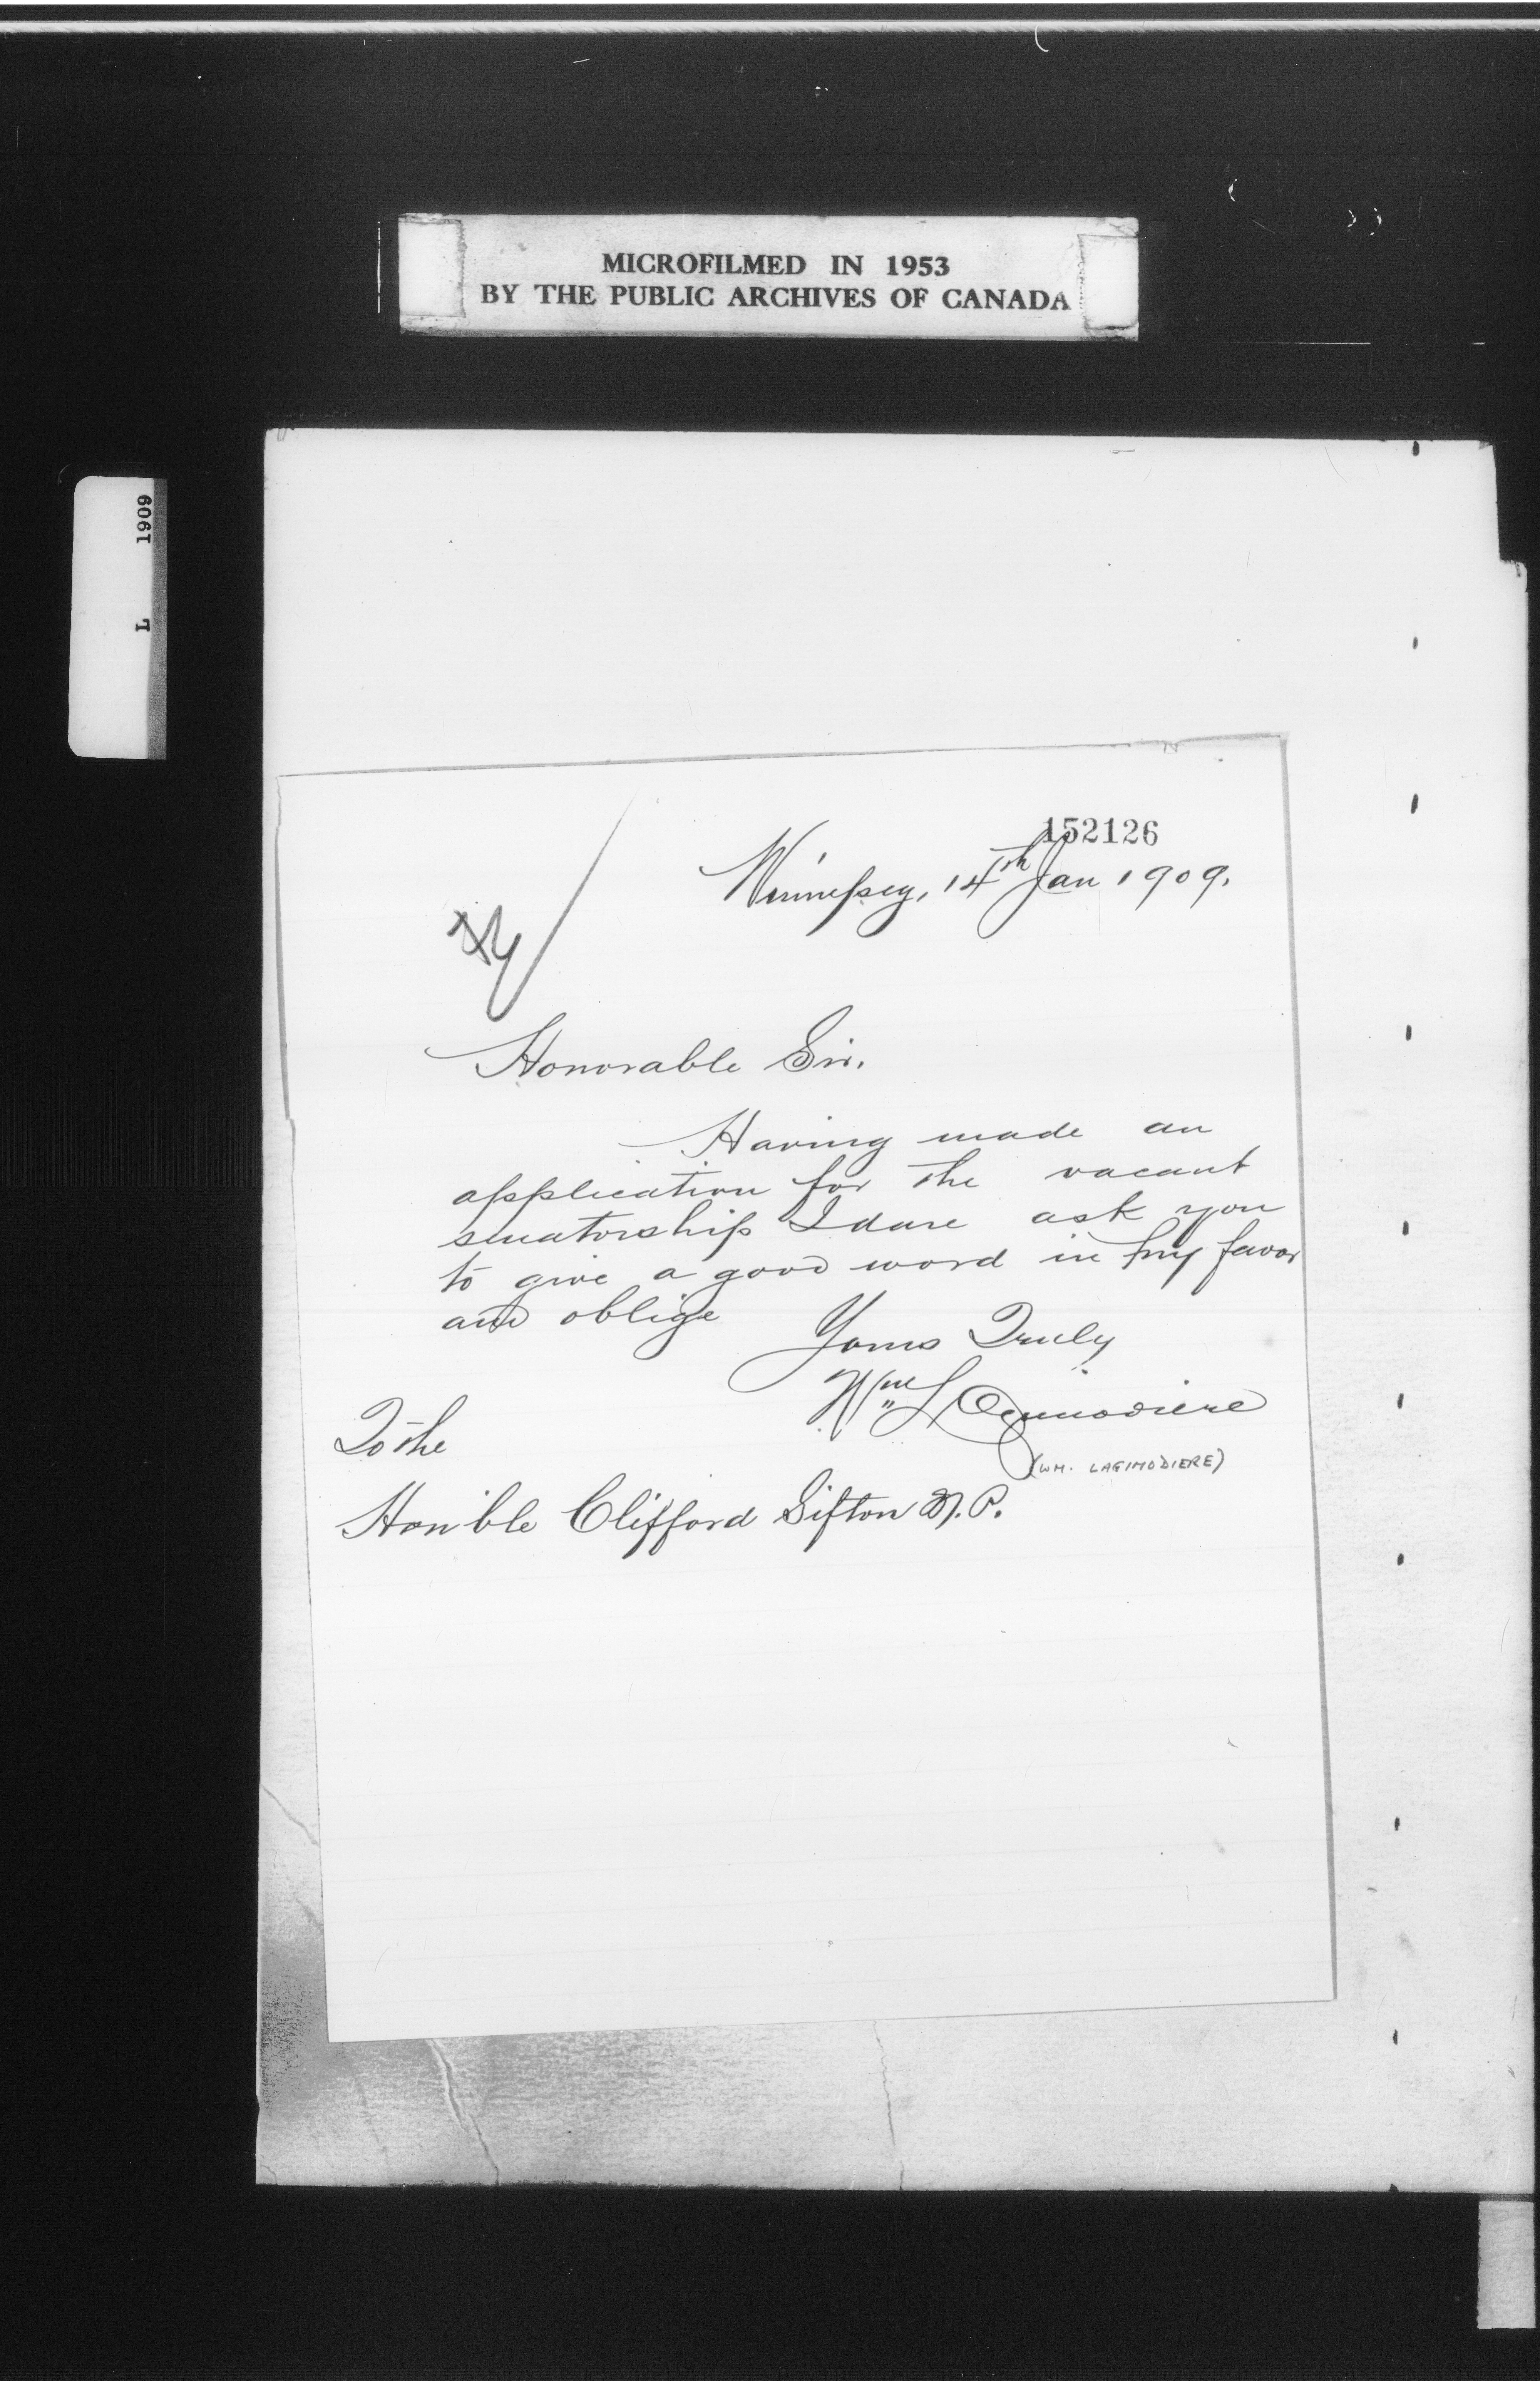 MICROFILMED IN 1953
BY THE PUBLIC ARCHIVES OF CANADA
L 1909
152126
Winnipeg, 14th Jan 1909.
Honorable Sir.
Having made an
application for the vacant
senatorship I dare ask you
to give a good word in my favor
and oblige
Yours Truly
Wm Lagimodiere
(WM. LAGIMODIERE)
To the
Hon'ble Clifford Sifton M.P.